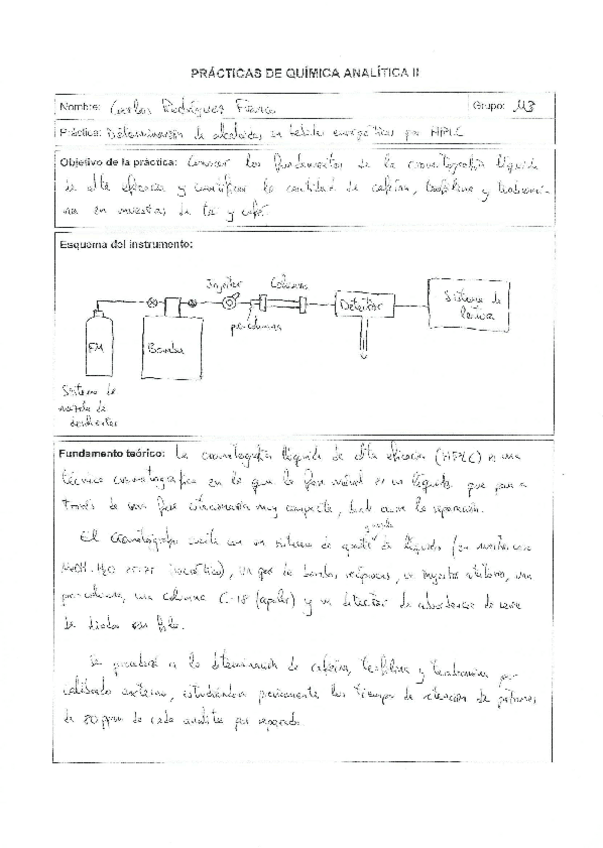 PRÁCTICAS DE QUÍMICA ANALÍTICA II
Nombre: Carlos Rodríguez Grupo: M3
Práctica: Determinación de alcaloides en bebidas energéticas por HPLC
Objetivo de la práctica: Conocer los fundamentos de la cromatografía líquida
de alta eficacia y cuantificar la cantidad de cafeína, teofilina y teobromi-
na en muestras de té y café.
Esquema del instrumento:
Inyector Columna
pre-columna
Detector
Sistema de
lectura
FM
Bomba
Sistema de
mezcla de
disolventes
Fundamento teórico: La cromatografía líquida de alta eficacia (HPLC) es una
técnica cromatográfica en la que la fase móvil es un líquido que pasa a
través de una fase estacionaria muy compacta, dando como la separación.
El cromatógrafo cuenta con un sistema de de líquidos (en nuestro caso
MeOH-H2O (isocrático), un par de bombas recíprocas, un inyector, una
pre-columna, una columna C-18 (apolar) y un detector de absorbancia de serie
de diodos en fila.
Se procederá a la determinación de cafeína, teofilina y teobromina por
calibrado externo, estudiándose previamente los tiempos de retención de patrones
de ppm de cada analito por separado.